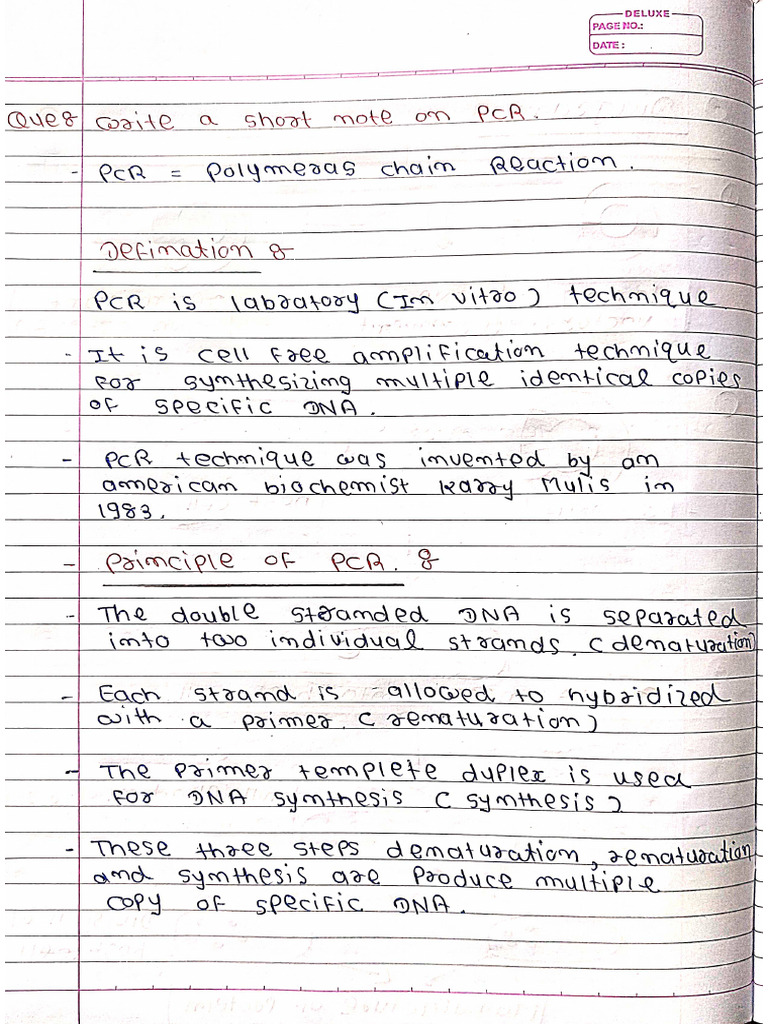 DELUXE
PAGE NO.:
DATE:
Que: write a short note on PCR.
- PCR = Polymeras chain Reaction.
Defination :
PCR is labratory (In vitro) technique
- It is cell free amplification technique
for synthesizing multiple identical copies
of specific DNA.
- PCR technique was invented by an
american biochemist Karry Mulis in
1983.
- Principle of PCR. :
- The double stranded DNA is separated
into two individual strands. (denaturation)
- Each strand is allowed to hybridized
with a primer. (renaturation)
- The primer templete duplex is used
for DNA synthesis (synthesis)
- These three steps denaturation, renaturation
and synthesis are produce multiple
copy of specific DNA.